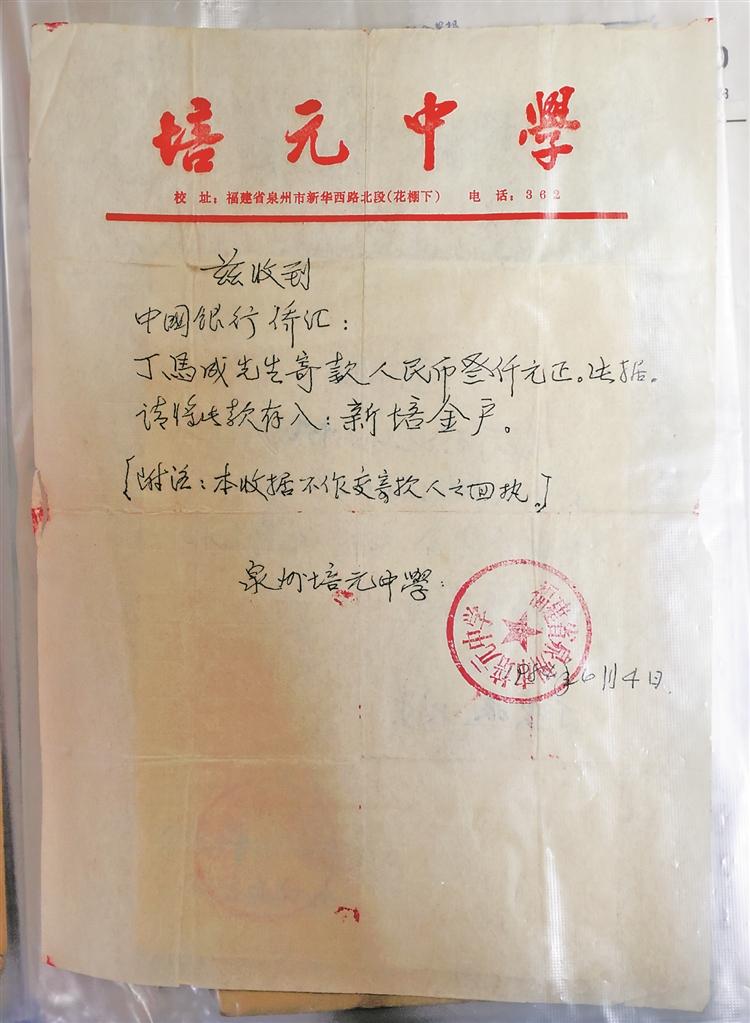 培元中學
校 址：福建省泉州市新华西路北段(花棚下) 电 话：362
兹收到
中国银行侨汇：
丁馬成先生寄款人民币叁仟元正。此据。
请将此款存入：新培金户。
[附注：本收据不作交寄款人之回执。]
泉州培元中學：
福建省泉州市培元中学
6月4日